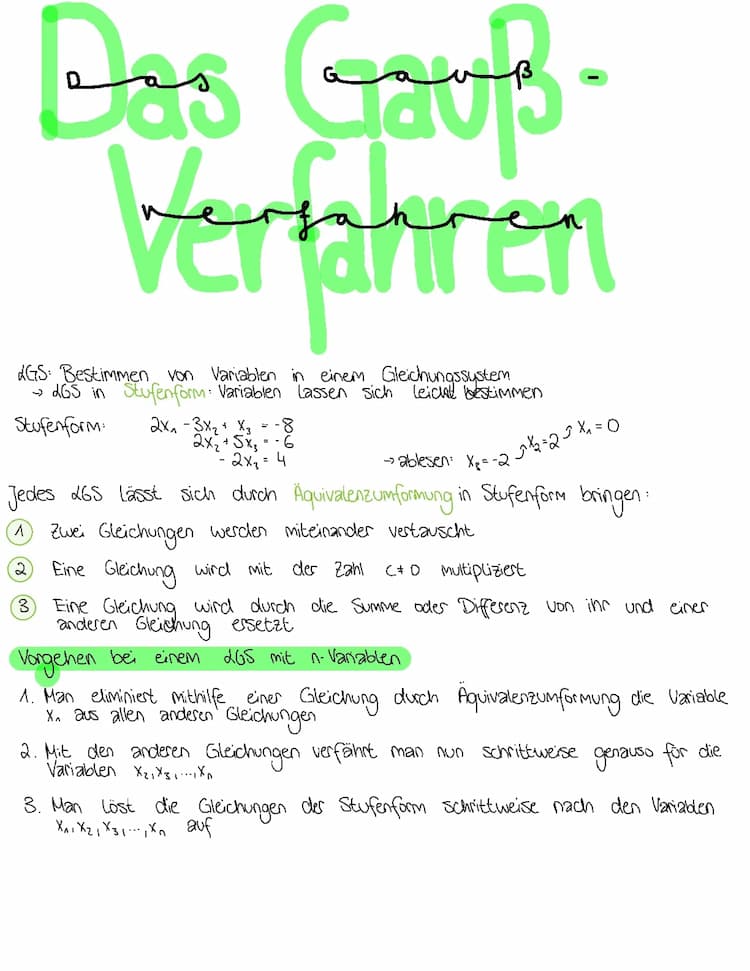 Das Gauß-
Verfahren
LGS: Bestimmen von Variablen in einem Gleichungssystem
→ LGS in Stufenform: Variablen lassen sich leicht bestimmen
Stufenform: 2x₁ - 3x₂ + x₃ = -8
2x₂ + 5x₃ = -6
- 2x₃ = 4 → ablesen: x₃ = -2 ⤴ x₂ = 2 ⤴ x₁ = 0
Jedes LGS lässt sich durch Äquivalenzumformung in Stufenform bringen:
① Zwei Gleichungen werden miteinander vertauscht
② Eine Gleichung wird mit der Zahl c ≠ 0 multipliziert
③ Eine Gleichung wird durch die Summe oder Differenz von ihr und einer
anderen Gleichung ersetzt
Vorgehen bei einem LGS mit n-Variablen
1. Man eliminiert mithilfe einer Gleichung durch Äquivalenzumformung die Variable
x₁ aus allen anderen Gleichungen
2. Mit den anderen Gleichungen verfährt man nun schrittweise genauso für die
Variablen x₂, x₃, ..., xₙ
3. Man löst die Gleichungen der Stufenform schrittweise nach den Variablen
x₁, x₂, x₃, ..., xₙ auf